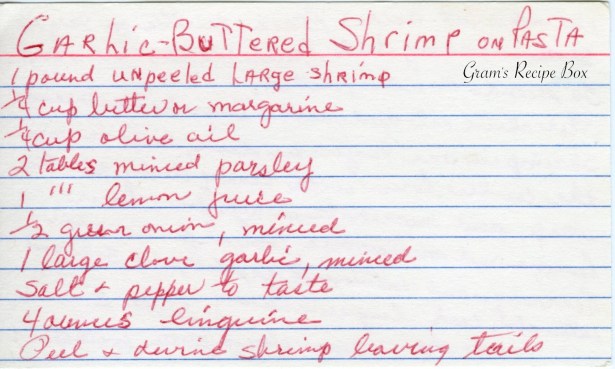 Garlic-Buttered Shrimp on Pasta
1 pound unpeeled Large shrimp
Gram's Recipe Box
1/4 cup butter or margarine
1/4 cup olive oil
2 tables minced parsley
1 " lemon juice
1/2 green onion, minced
1 large clove garlic, minced
Salt & pepper to taste
4 ounces linguine
Peel & devine shrimp leaving tails